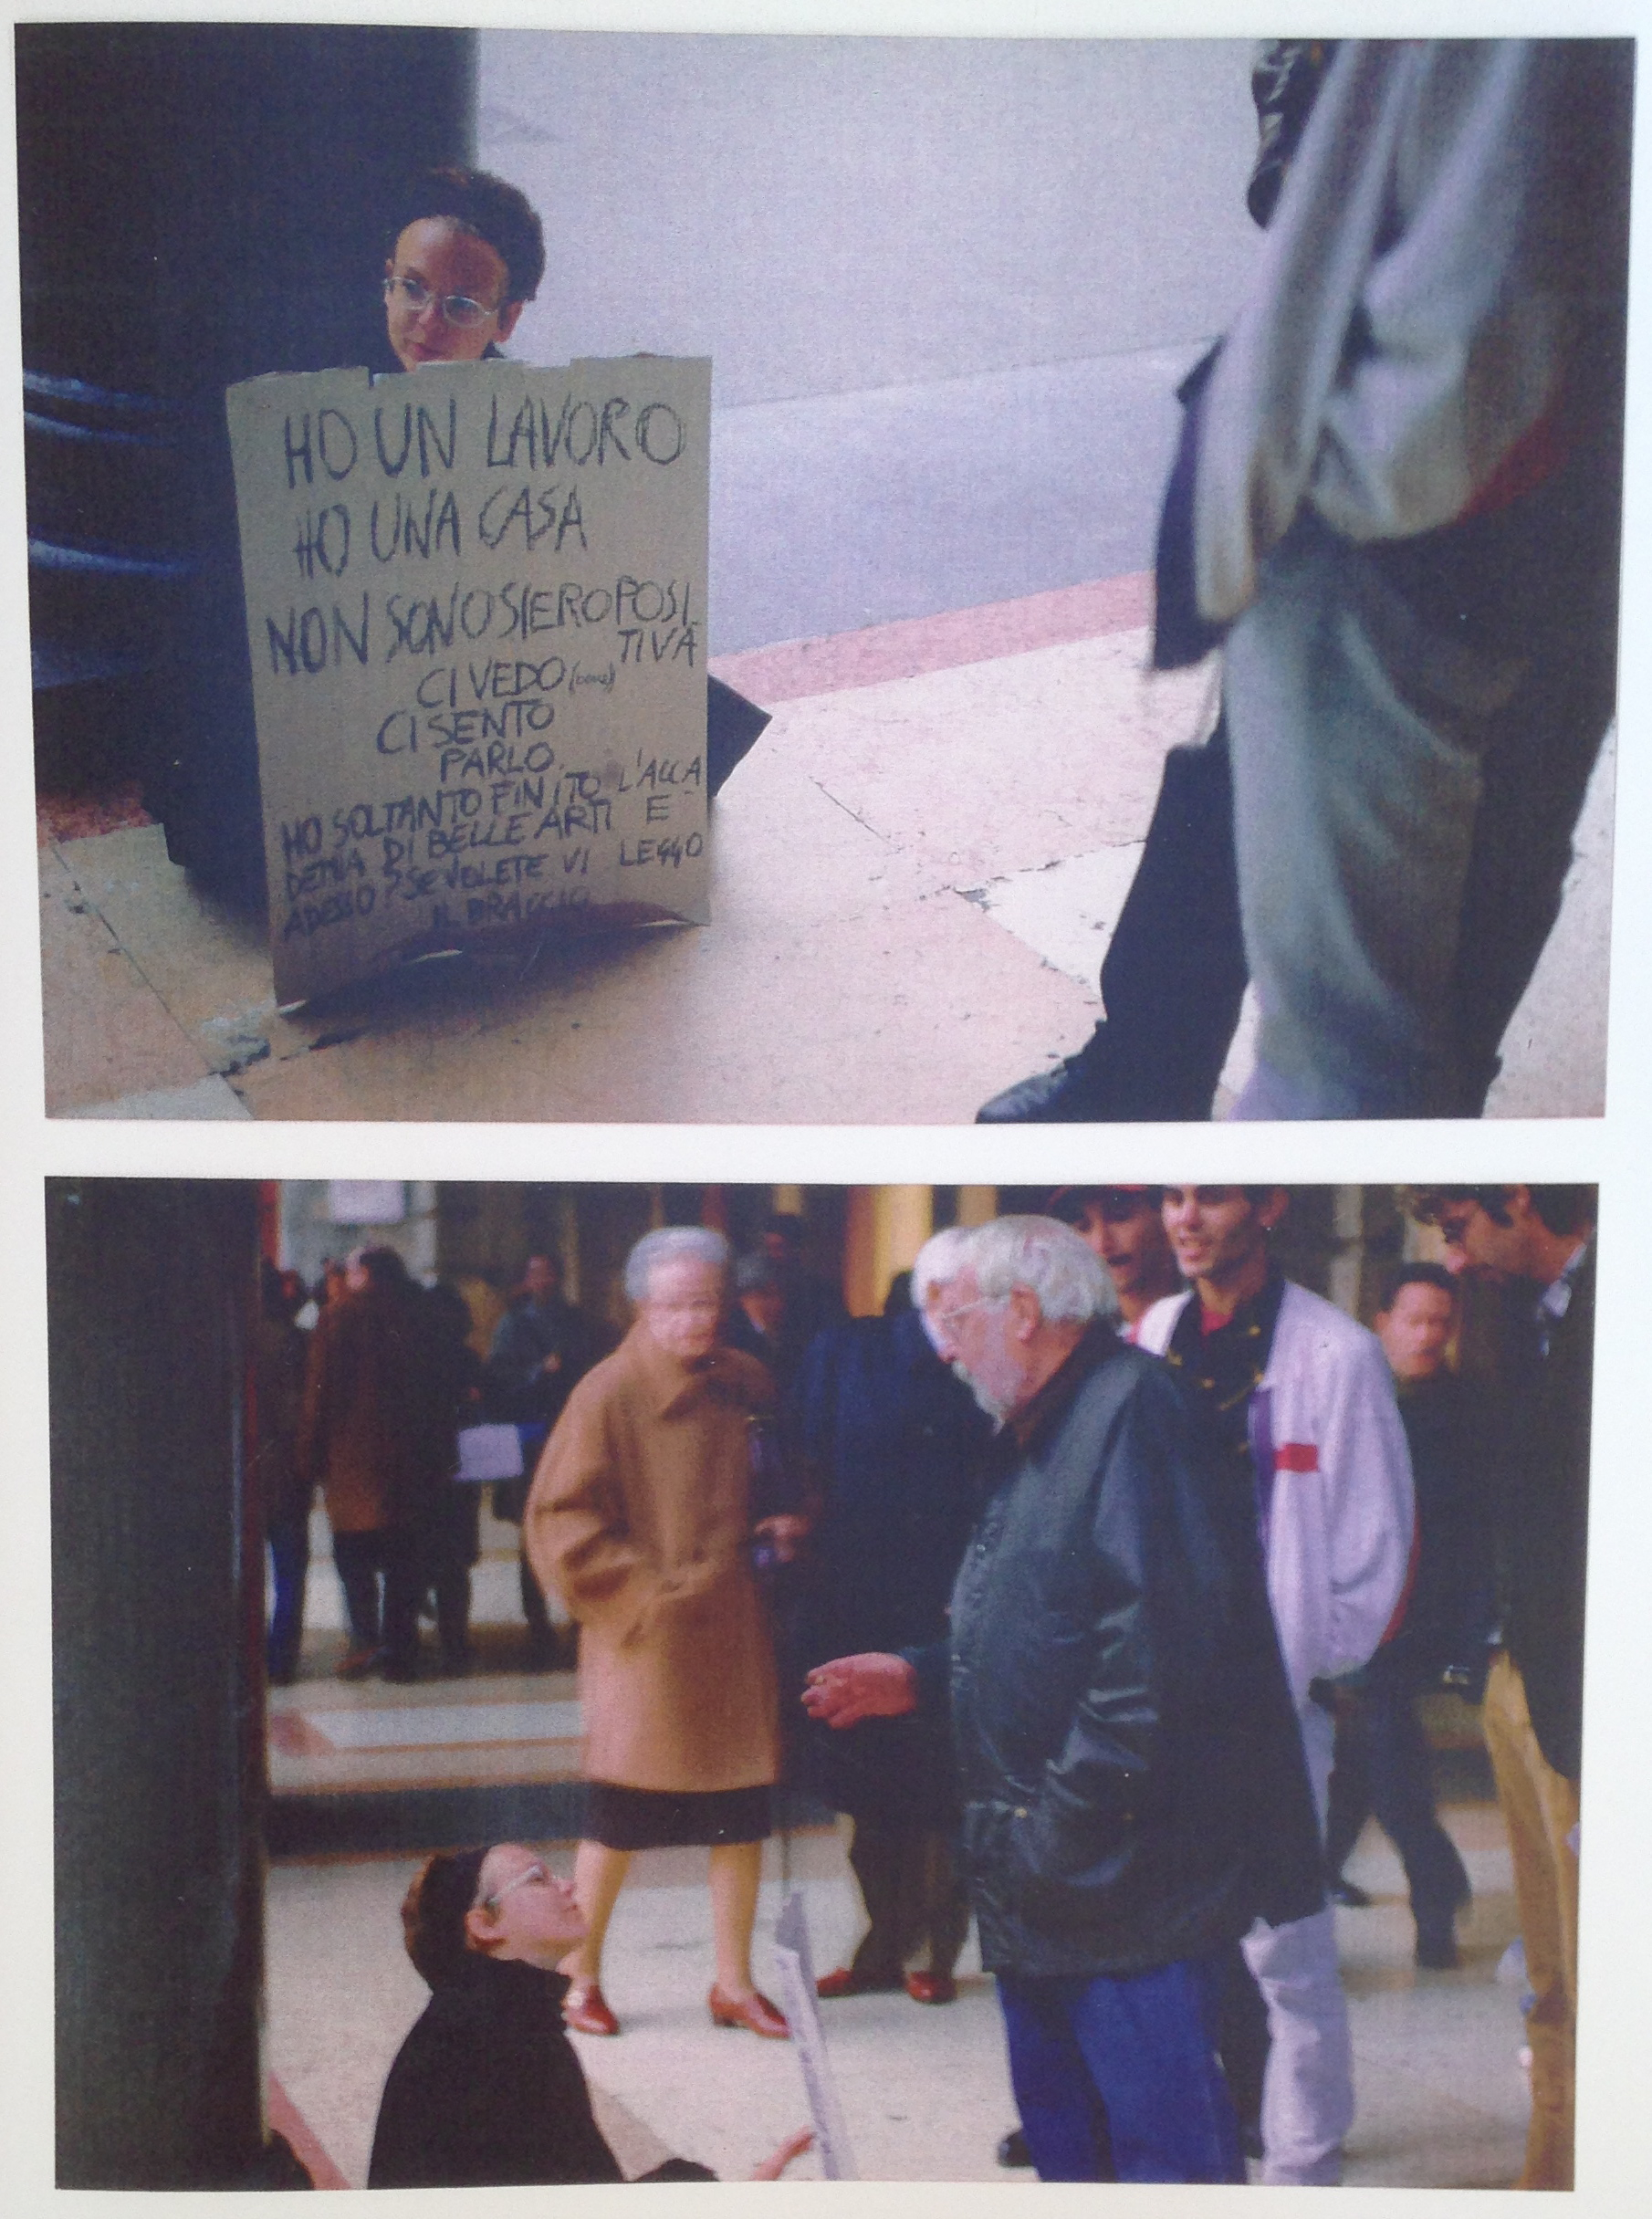 HO UN LAVORO
HO UNA CASA
NON SONO SIEROPOSI
TIVA
CI VEDO (bene)
CI SENTO
PARLO.
HO SOLTANTO FINITO L'ACCA
DEMIA DI BELLE ARTI E
ADESSO? SE VOLETE VI LEGGO
IL BRACCIO